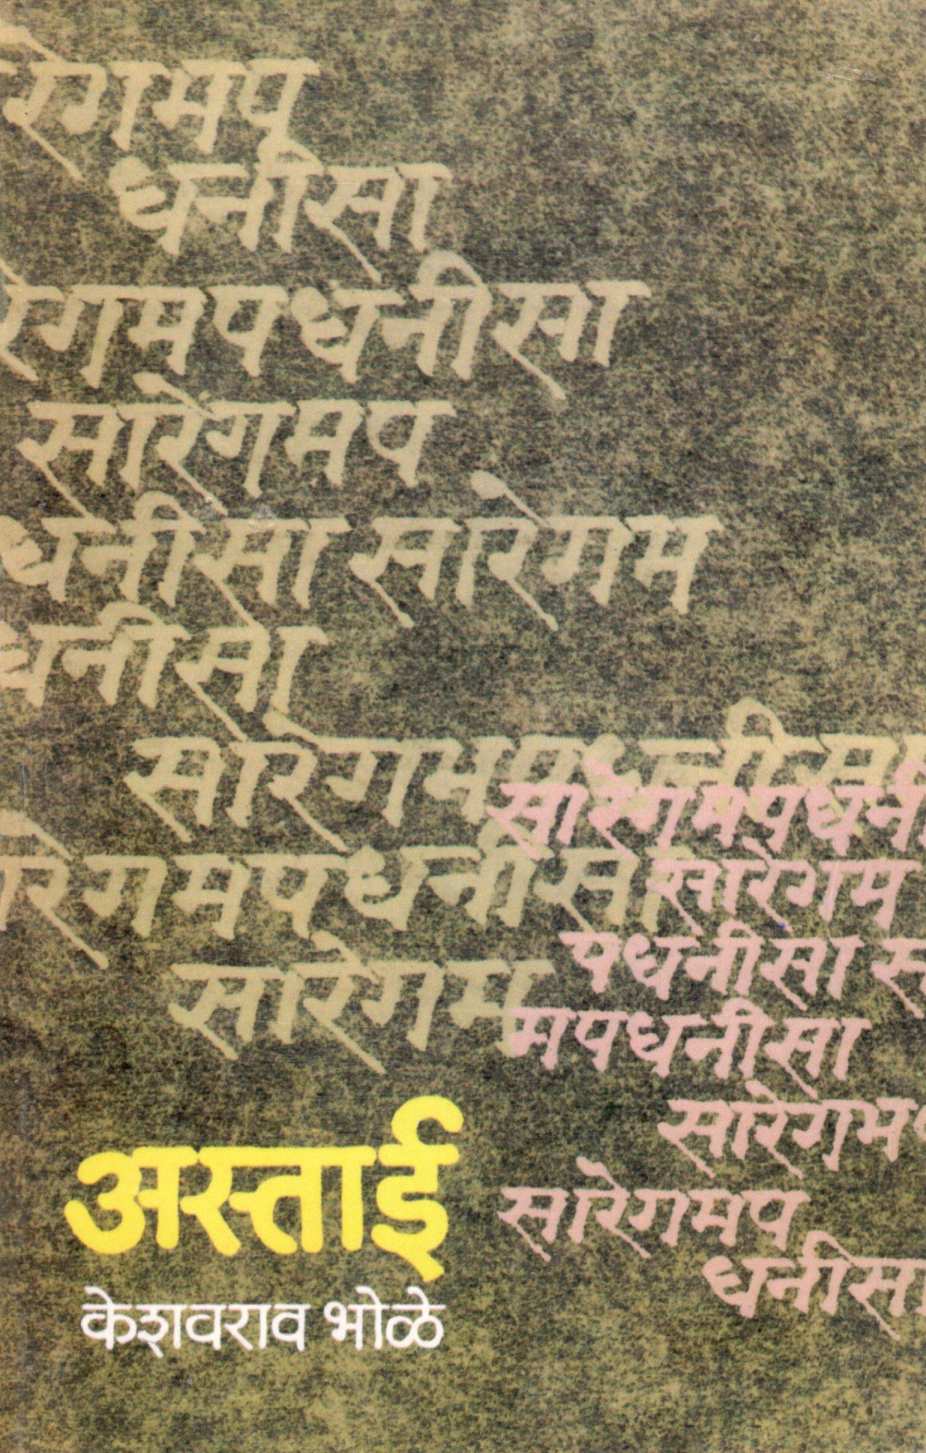 रेगमप
धनीसा
रेगमपधनीसा
सारेगमप
धनीसा सारेगम
धनीसा
सारेगमपधनीसा
सारेगमपधनी
सारेगमपधनीसा
सारेगम
पधनीसा स
सारेगम
मपधनीसा
सारेगमप
सारेगमप
धनीसा
अस्ताई
केशवराव भोळे